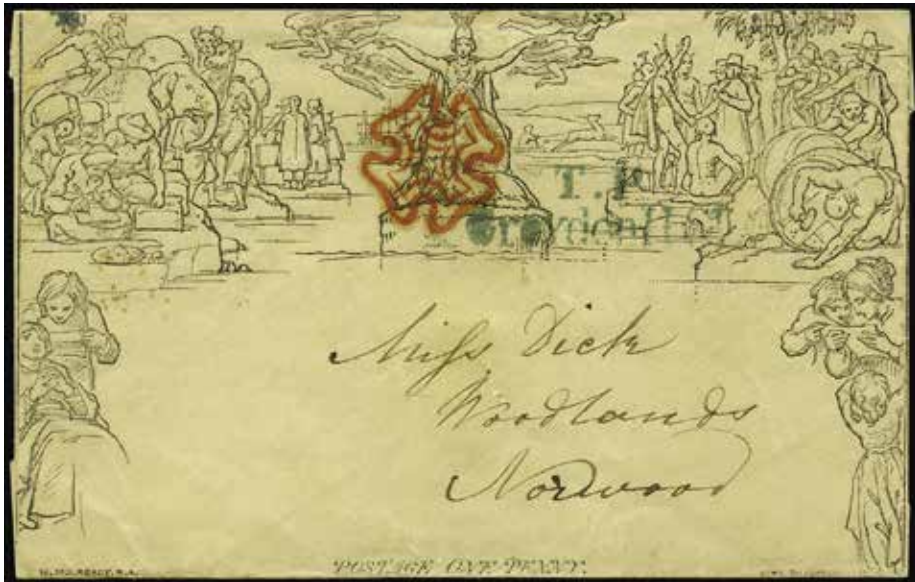 T. P
Croydon Hill
Miss Dick
Woodlands
Norwood
W. MULREADY, R.A.
POSTAGE ONE PENNY.